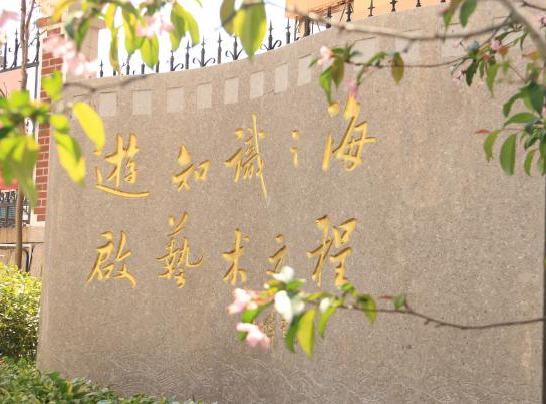 遊知識之海
啟藝术之程